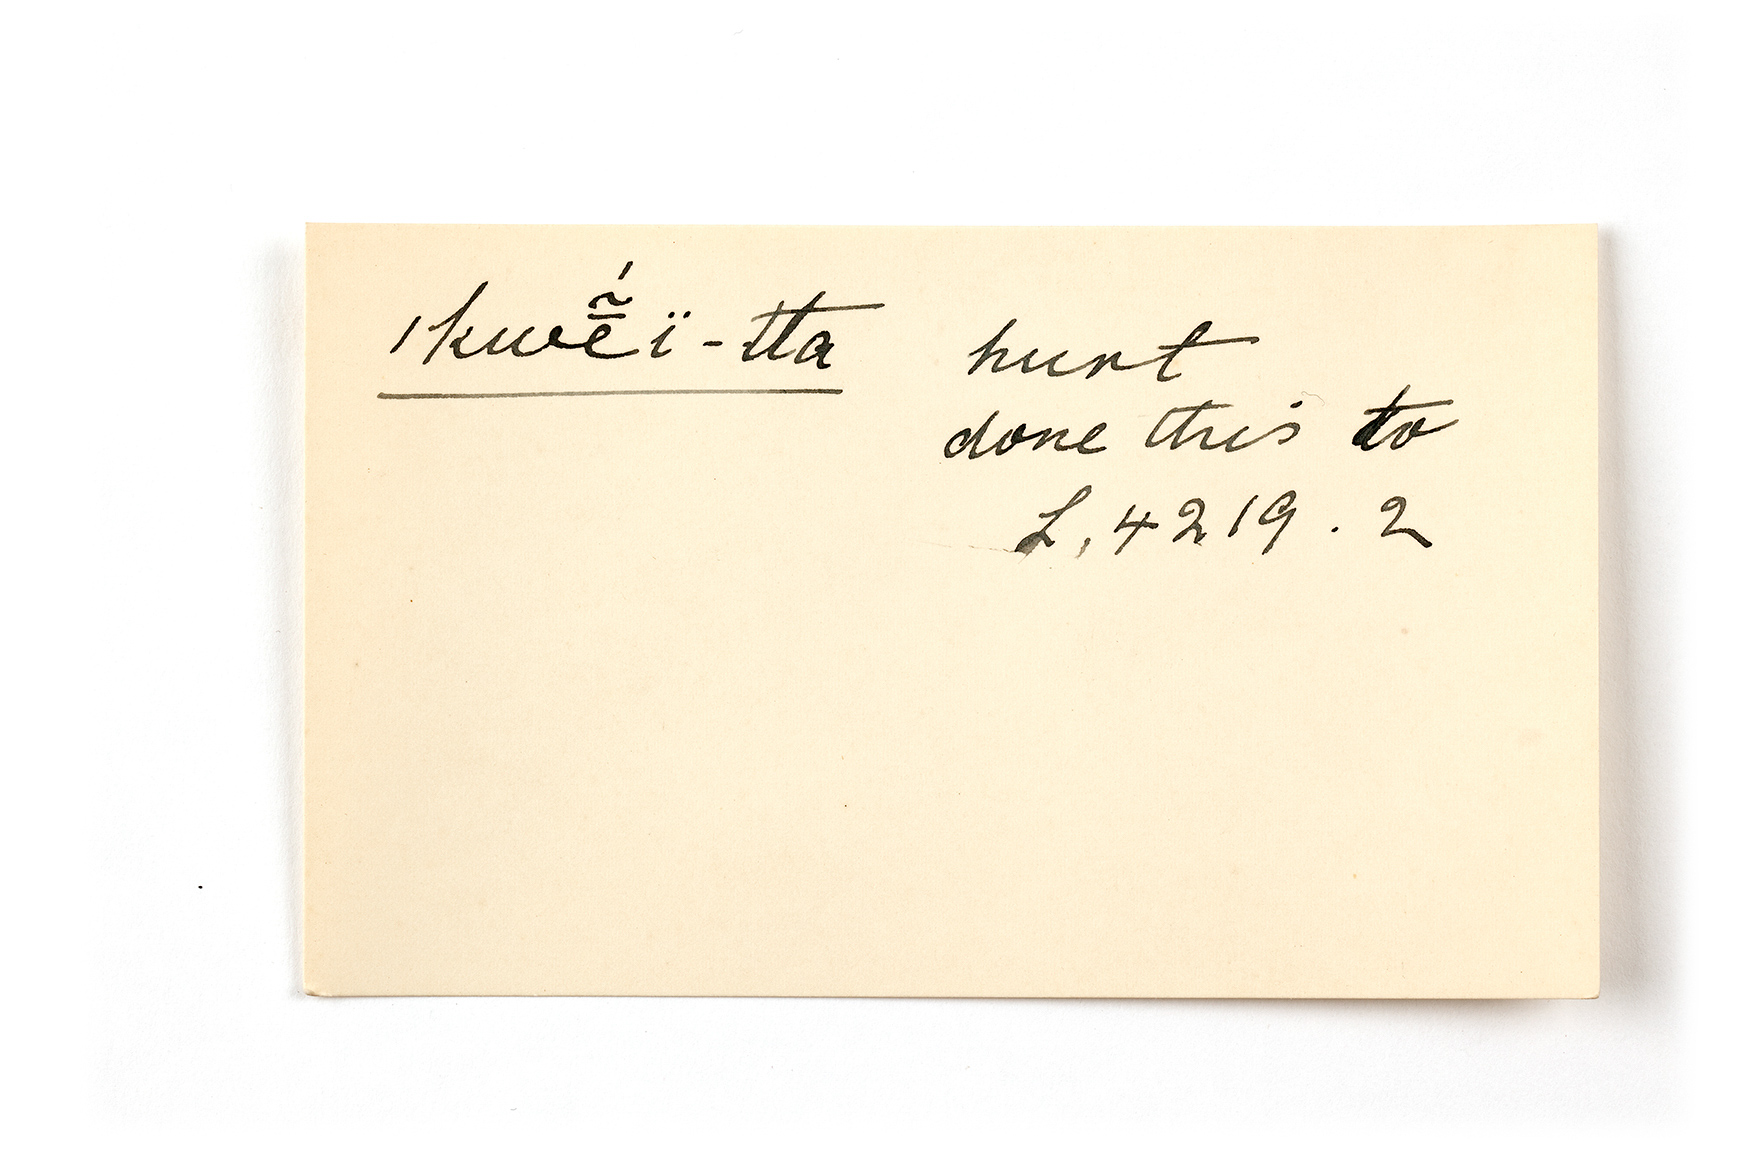 ǀkwḗ̃ï-tta hurt
done this to
L, 4219 . 2